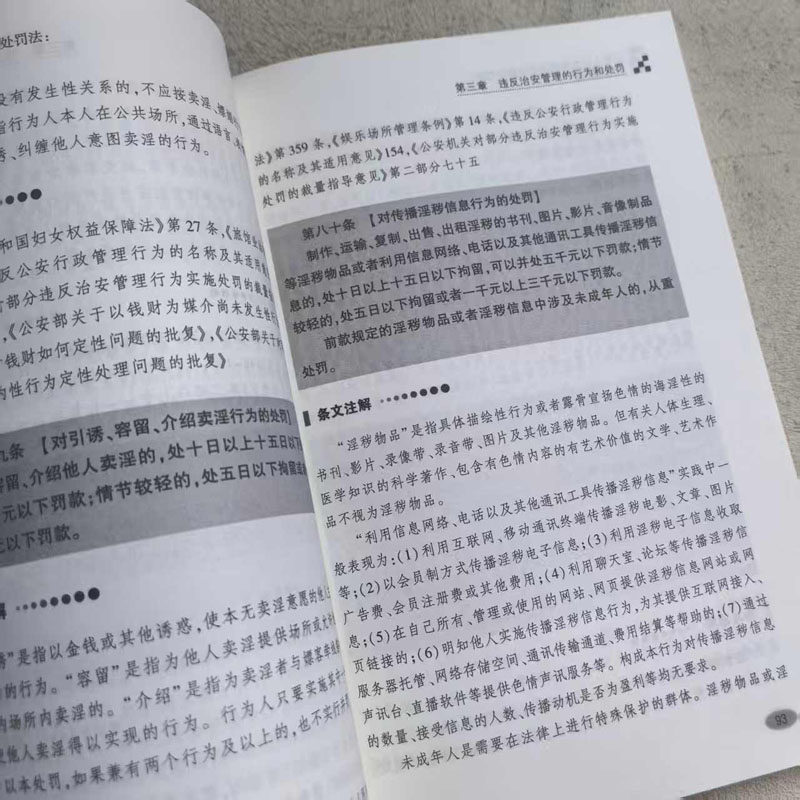 处罚法：
没有发生性关系的，不应按卖淫、嫖
指行为人本人在公共场所，通过语言、
诱、纠缠他人意图卖淫的行为。
和国妇女权益保障法》第 27 条，《旅馆业
反公安行政管理行为的名称及其适用
对部分违反治安管理行为实施处罚的裁量
，《公安部关于以钱财为媒介尚未发生性
钱财如何定性问题的批复》，《公安部关于
为性行为定性处理问题的批复》
九条 【对引诱、容留、介绍卖淫行为的处罚】
容留、介绍他人卖淫的，处十日以上十五日以下
元以下罚款；情节较轻的，处五日以下拘留或
元以下罚款。
解
诱”是指以金钱或其他诱惑，使本无卖淫意愿的他
的行为。“容留”是指为他人卖淫提供场所或
内场所内卖淫的。“介绍”是指为卖淫者与嫖客牵线
使他人卖淫得以实现的行为。行为人只要实施其
以本处罚，如果兼有两个行为及以上的，也不实行并
第三章 违反治安管理的行为和处罚
法》第 359 条，《娱乐场所管理条例》第 14 条，《违反公安行政管理行为
的名称及其适用意见》154，《公安机关对部分违反治安管理行为实施
处罚的裁量指导意见》第二部分七十五
第八十条 【对传播淫秽信息行为的处罚】
制作、运输、复制、出售、出租淫秽的书刊、图片、影片、音像制品
等淫秽物品或者利用信息网络、电话以及其他通讯工具传播淫秽信
息的，处十日以上十五日以下拘留，可以并处五千元以下罚款；情节
较轻的，处五日以下拘留或者一千元以上三千元以下罚款。
前款规定的淫秽物品或者淫秽信息中涉及未成年人的，从重
处罚。
条文注解
“淫秽物品”是指具体描绘性行为或者露骨宣扬色情的诲淫性的
书刊、影片、录像带、录音带、图片及其他淫秽物品。但有关人体生理、
医学知识的科学著作、包含有色情内容的有艺术价值的文学、艺术作
品不视为淫秽物品。
“利用信息网络、电话以及其他通讯工具传播淫秽信息”实践中一
般表现为：(1)利用互联网、移动通讯终端传播淫秽电影、文章、图片
等；(2)以会员制方式传播淫秽电子信息；(3)利用淫秽电子信息收取
广告费、会员注册费或其他费用；(4)利用聊天室、论坛等传播淫秽信
息；(5)在自己所有、管理或使用的网站、网页提供淫秽信息网站或网
页链接的；(6)明知他人实施传播淫秽信息行为，为其提供互联网接入、
服务器托管、网络存储空间、通讯传输通道、费用结算等帮助的；(7)通过
声讯台、直播软件等提供色情声讯服务等。构成本行为对传播淫秽信息
的数量、接受信息的人数、传播动机是否为盈利等均无要求。
未成年人是需要在法律上进行特殊保护的群体。淫秽物品或淫
93